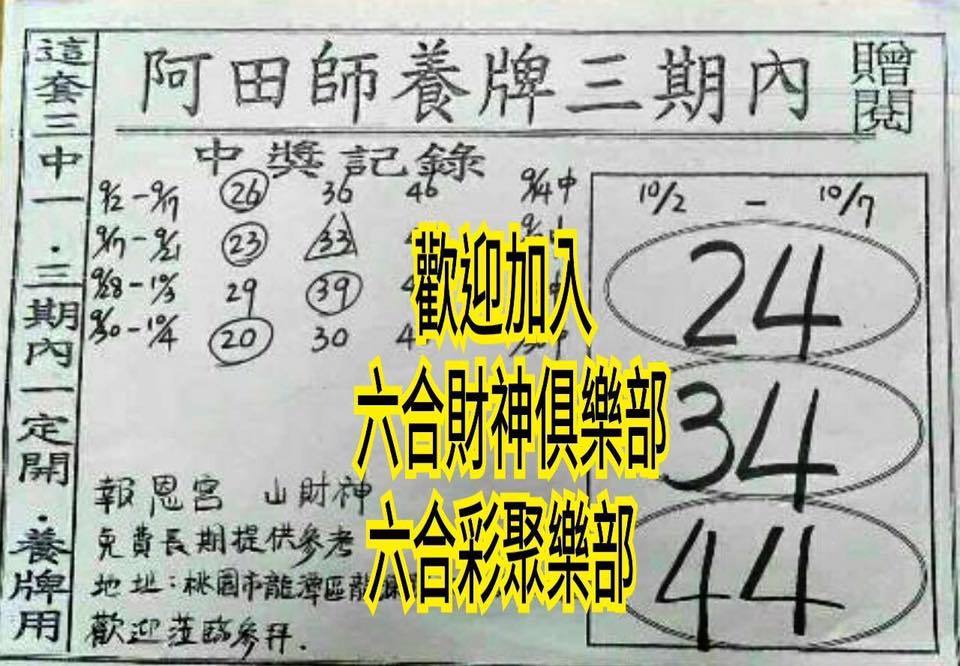 阿田師養牌三期內
贈閱
這套三中一．三期內一定開．養牌用
中獎記錄
9/2 - 9/7 26 36 46 9/4中
9/17 - 9/21 23 33
9/28 - 10/3 29 39
9/30 - 10/4 20 30
10/2 - 10/7
24
34
44
歡迎加入
六合財神俱樂部
六合彩聚樂部
報恩宮 山財神
免費長期提供參考
地址：桃園市龍潭區龍
歡迎蒞臨參拜.